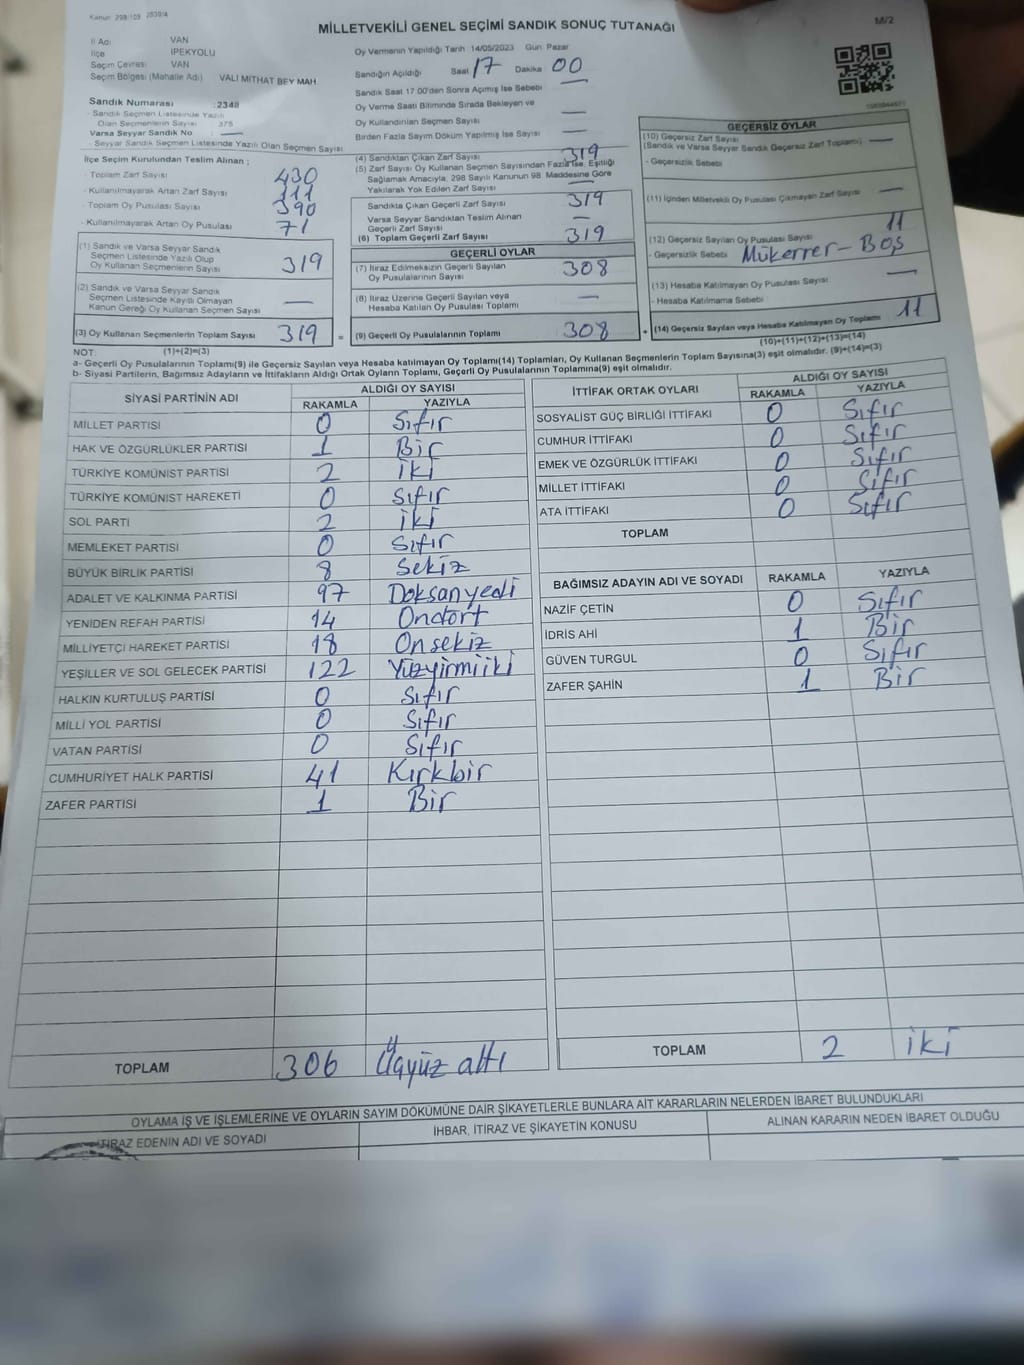 Kanun: 298/103 2839/A
MİLLETVEKİLİ GENEL SEÇİMİ SANDIK SONUÇ TUTANAĞI
M/2
İl Adı VAN
İlçe İPEKYOLU
Seçim Çevresi VAN
Seçim Bölgesi (Mahalle Adı) VALİ MİTHAT BEY MAH
Sandık Numarası :2348
- Sandık Seçmen Listesinde Yazılı
Olan Seçmenlerin Sayısı 375
Varsa Seyyar Sandık No : —
- Seyyar Sandık Seçmen Listesinde Yazılı Olan Seçmen Sayısı
Oy Vermenin Yapıldığı Tarih :14/05/2023 Gün: Pazar
Sandığın Açıldığı Saat 17 Dakika 00
Sandık Saat 17.00'den Sonra Açılmış İse Sebebi —
Oy Verme Saati Bitiminde Sırada Bekleyen ve
Oy Kullandırılan Seçmen Sayısı —
Birden Fazla Sayım Döküm Yapılmış İse Sayısı —
İlçe Seçim Kurulundan Teslim Alınan ;
- Toplam Zarf Sayısı 430
- Kullanılmayarak Artan Zarf Sayısı 111
- Toplam Oy Pusulası Sayısı 390
- Kullanılmayarak Artan Oy Pusulası 71
(1) Sandık ve Varsa Seyyar Sandık
Seçmen Listesinde Yazılı Olup
Oy Kullanan Seçmenlerin Sayısı 319
(2) Sandık ve Varsa Seyyar Sandık
Seçmen Listesinde Kayıtlı Olmayan
Kanun Gereği Oy Kullanan Seçmen Sayısı —
(3) Oy Kullanan Seçmenlerin Toplam Sayısı 319 =
(1)+(2)=(3)
(4) Sandıktan Çıkan Zarf Sayısı 319
(5) Zarf Sayısı Oy Kullanan Seçmen Sayısından Fazla İse, Eşitliği
Sağlamak Amacıyla, 298 Sayılı Kanunun 98. Maddesine Göre
Yakılarak Yok Edilen Zarf Sayısı —
Sandıkta Çıkan Geçerli Zarf Sayısı 319
Varsa Seyyar Sandıktan Teslim Alınan
Geçerli Zarf Sayısı —
(6) Toplam Geçerli Zarf Sayısı 319
GEÇERLİ OYLAR
(7) İtiraz Edilmeksizin Geçerli Sayılan
Oy Pusulalarının Sayısı 308
(8) İtiraz Üzerine Geçerli Sayılan veya
Hesaba Katılan Oy Pusulası Toplamı —
(9) Geçerli Oy Pusulalarının Toplamı 308 +
GEÇERSİZ OYLAR
(10) Geçersiz Zarf Sayısı
(Sandık ve Varsa Seyyar Sandık Geçersiz Zarf Toplamı) —
- Geçersizlik Sebebi
(11) İçinden Milletvekili Oy Pusulası Çıkmayan Zarf Sayısı —
(12) Geçersiz Sayılan Oy Pusulası Sayısı 11
- Geçersizlik Sebebi Mükerrer - Boş
(13) Hesaba Katılmayan Oy Pusulası Sayısı —
- Hesaba Katılmama Sebebi
(14) Geçersiz Sayılan veya Hesaba Katılmayan Oy Toplamı 11
(10)+(11)+(12)+(13)=(14)
NOT:
a- Geçerli Oy Pusulalarının Toplamı(9) ile Geçersiz Sayılan veya Hesaba katılmayan Oy Toplamı(14) Toplamları, Oy Kullanan Seçmenlerin Toplam Sayısına(3) eşit olmalıdır. (9)+(14)=(3)
b- Siyasi Partilerin, Bağımsız Adayların ve İttifakların Aldığı Ortak Oyların Toplamı, Geçerli Oy Pusulalarının Toplamına(9) eşit olmalıdır.
SİYASİ PARTİNİN ADI
ALDIĞI OY SAYISI
RAKAMLA YAZIYLA
MİLLET PARTİSİ 0 Sıfır
HAK VE ÖZGÜRLÜKLER PARTİSİ 1 Bir
TÜRKİYE KOMÜNİST PARTİSİ 2 iki
TÜRKİYE KOMÜNİST HAREKETİ 0 Sıfır
SOL PARTİ 2 iki
MEMLEKET PARTİSİ 0 Sıfır
BÜYÜK BİRLİK PARTİSİ 8 Sekiz
ADALET VE KALKINMA PARTİSİ 97 Doksanyedi
YENİDEN REFAH PARTİSİ 14 Ondört
MİLLİYETÇİ HAREKET PARTİSİ 18 Onsekiz
YEŞİLLER VE SOL GELECEK PARTİSİ 122 Yüzyirmiiki
HALKIN KURTULUŞ PARTİSİ 0 Sıfır
MİLLİ YOL PARTİSİ 0 Sıfır
VATAN PARTİSİ 0 Sıfır
CUMHURİYET HALK PARTİSİ 41 Kırkbir
ZAFER PARTİSİ 1 Bir
TOPLAM 306 Üçyüz altı
İTTİFAK ORTAK OYLARI
ALDIĞI OY SAYISI
RAKAMLA YAZIYLA
SOSYALİST GÜÇ BİRLİĞİ İTTİFAKI 0 Sıfır
CUMHUR İTTİFAKI 0 Sıfır
EMEK VE ÖZGÜRLÜK İTTİFAKI 0 Sıfır
MİLLET İTTİFAKI 0 Sıfır
ATA İTTİFAKI 0 Sıfır
TOPLAM
BAĞIMSIZ ADAYIN ADI VE SOYADI RAKAMLA YAZIYLA
NAZİF ÇETİN 0 Sıfır
İDRİS AHİ 1 Bir
GÜVEN TURGUL 0 Sıfır
ZAFER ŞAHİN 1 Bir
TOPLAM 2 iki
OYLAMA İŞ VE İŞLEMLERİNE VE OYLARIN SAYIM DÖKÜMÜNE DAİR ŞİKAYETLERLE BUNLARA AİT KARARLARIN NELERDEN İBARET BULUNDUKLARI
İTİRAZ EDENİN ADI VE SOYADI
İHBAR, İTİRAZ VE ŞİKAYETİN KONUSU
ALINAN KARARIN NEDEN İBARET OLDUĞU